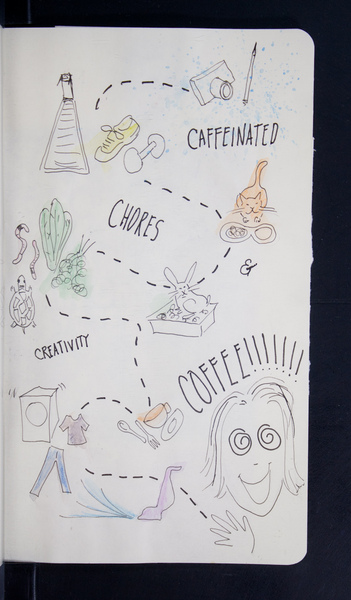 CAFFEINATED
CHORES
&
CREATIVITY
COFFEE!!!!!!!